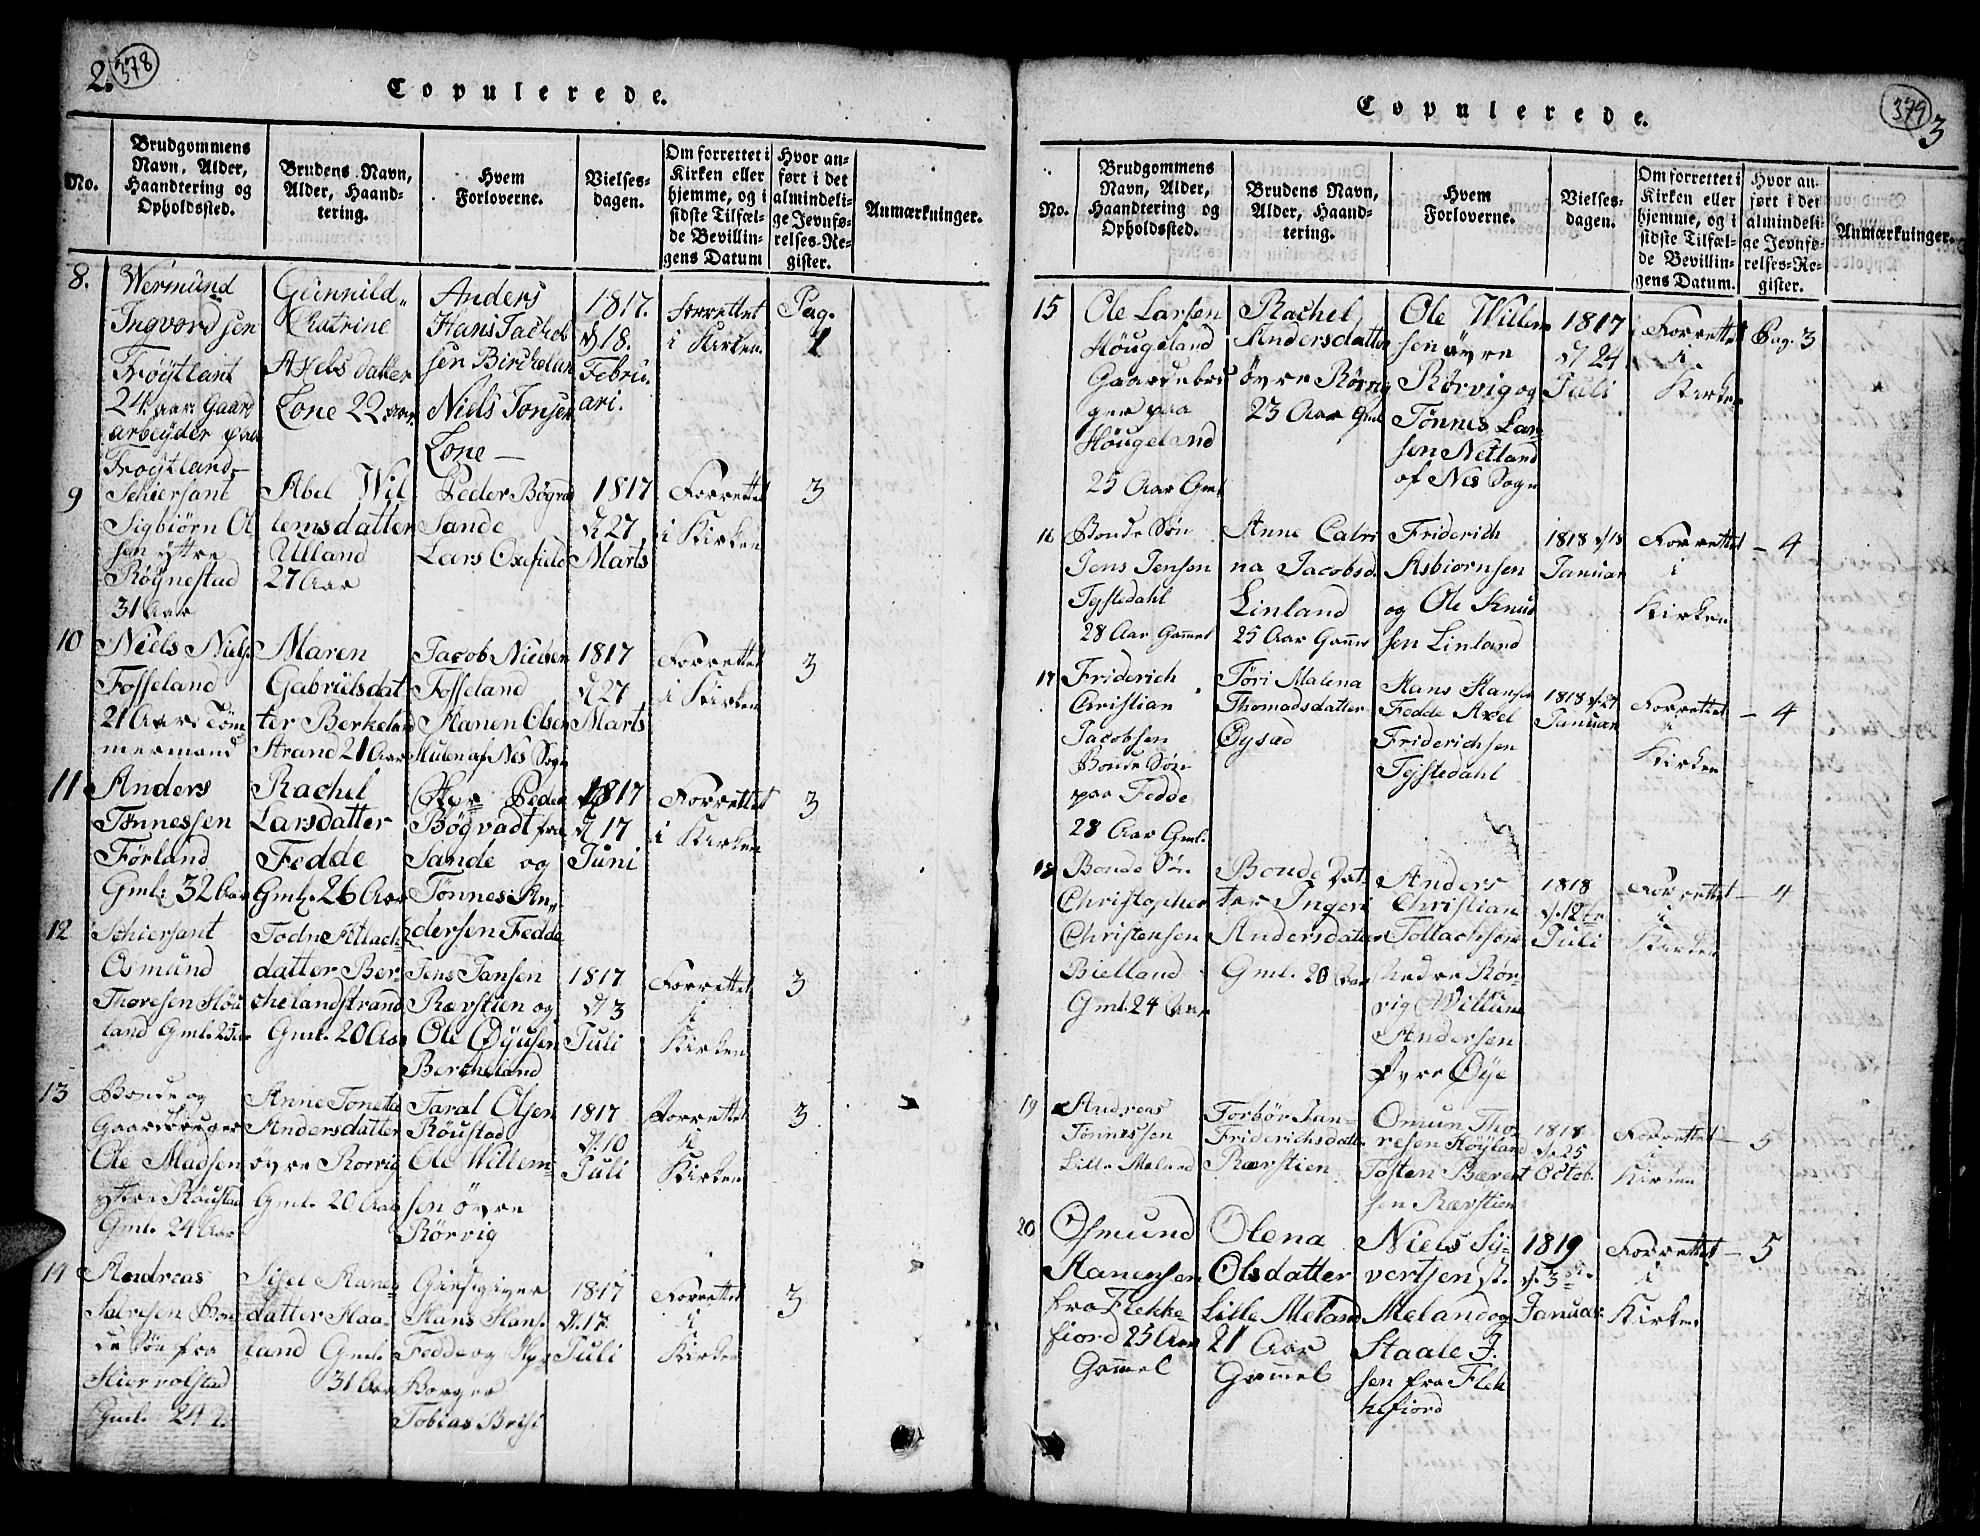 2. 378
Copulerede.
No.
Brudgommens
Navn, Alder,
Haandtering og
Opholdssted.
Brudens Navn,
Alder, Haand-
tering.
Hvem
Forloverne.
Vielses-
dagen.
Om forrettet i
Kirken eller
hjemme, og i
sidste Tilfæl-
de Bevillin-
gens Datum
Hvor an-
ført i det
almindeli-
ge Jevnfø-
relses-Re-
gister.
Anmærkninger.
8.
Wermund
Ingvordsen
Trøÿtlant
24. aar. Gaard
arbeÿder paa
Trøÿtland
Gunnild„
Catrine
Axels datter
Lone 22 aar.
Anders
Hans Jachob
sen Birchelan
Niels Jonsen
Lone —
1817.
d 18.
Febru„
ari.
forrettet
i Kirken.
Pag.
1
9
Schiersant
Sigbiörn Ol
sen ÿttre
Røÿnestad
31 Aar
Abel Wil
lemsdatter
Ulland
27 Aar
Peder Bøgvad
Sande
Lars Oxefield
1817
d 27
Marts
Forrettet
i Kirken
3
10
Niels Niels.
Fosseland
21 Aar: Töm
mermand
Maren
Gabrielsdat
ter Berkeland
Strand 21 Aar
Jacob Nielsen
Fosseland
Hanen Olsen
Mulen af Nes Sogn
1817
d 27
Marts
Forrettet
i Kirken
3
11
Anders
Tønnessen
Førland
Gml: 32 Aar
Rachel
Larsdatter
Fedde
Gml. 26 Aar
Hr Peder
Bøgvadt fra
Sande og
Tønnes An„
dersen Fedde
1817
d 17
Juni
Forrettet
i Kirken
3
12
Schiersant
Osmund
Thoresen Höi
land Gml. 25 Aar
Todne Attach
datter Ber-
chelandstrand
Gml. 20 Aar
Jens Jansen
Rærstien og
Ole Øÿusen
Bercheland
1817
d 3
Juli
Forrettet
i
Kirken
3
13
Bonde og
Gaardbruger
Ole Madsen
ÿttre Röustad
Gml. 24 Aar
Anne Tonette
Andersdatter
övre Rorvig
Gml. 20 Aar
Taral Olsen
Röustad
Ole Willem-
sen övre
Rörvig
1817
d. 10
Juli
Forrettet
i
Kirken
3
14
Andreas
Salvesen Bon
de Sön fra
Hiervolstad
Gml. 24
Sisel Hanes
datter Haa-
land Gml.
31 Aar
Giestgiver
Hans Han-
Fedde og Hr
Borger
Tobias
1817
d. 17
Juli
Forrettet
i
Kirken
3
379 3
Copulerede.
No.
Brudgommens
Navn, Alder,
Haandtering og
Opholdssted.
Brudens Navn,
Alder, Haand-
tering.
Hvem
Forloverne.
Vielses-
dagen.
Om forrettet i
Kirken eller
hjemme, og i
sidste Tilfæl-
de Bevillin-
gens Datum.
Hvor an-
ført i det
almindeli-
ge Jevnfø-
relses-Re-
gister.
Anmærkninger.
15
Ole Larsen
Höugeland
Gaardebru
ger paa
Höugeland
25 Aar Gml
Rachel
Andersdatter
övre Rörvig
23 Aar Gml
Ole Willem
sen övre
Rörvig og
Tønnes Lar
sen Netland
af Nes Sogn
1817
d 24
Juli
Forrettet
i
Kirken
Pag. 3
16
Bonde Sön
Jens Jensen
Tÿstedahl
28 Aar Gammel
Anne Catri
na Jacobsd.
Linland
25 Aar Gammel
Friderich
Asbiornsen
og Ole Knud
sen Linland
1818 d 18
Januar
Forrettet
i
Kirken
— 4
17
Friderich
Christian
Jacobsen
Bonde Sön
paa Fedde
28 Aar Gml.
Töri Malena
Thomadsdatter
Øÿsad
Hans Hansen
Fedde Axel
Friderichsen
Tÿstedahl
1818 d 27
Januar
Forrettet
i
Kirken
— 4
18
Bonde Sön
Christopher
Christensen
Bielland
Gml. 24 Aar
Bonde Dat
ter Ingeri
Andersdatter
Gml. 20 Aar
Anders
Christian
Tollachsen
Nedre Rör-
vig Willum
Andersen
Øvre Øÿe
1818
d. 12te
Juli
Forrettet
i
Kirken
— 4
19
Andreas
Tönnessen
Lille Meland
Torbör Jan-
Friderichsdatter
Rærstien
Omun Tho-
resen Höÿland
Tosten Bærent
sen Rærstien
1818
d. 25
Octob.
Forrettet
i
Kirken
— 5
20
Osmund
Hanensen
fra Flekke-
fiord 25 Aar
Gammel
Olena
Olsdatter
Lille Meland
21 Aar
Gammel
Niels Sÿ-
vertsen st.
Meland og
Staale J.
sen fra Flek
kefiord
1819
d. 3die
Januar
Forrettet
i
Kirken
— 5